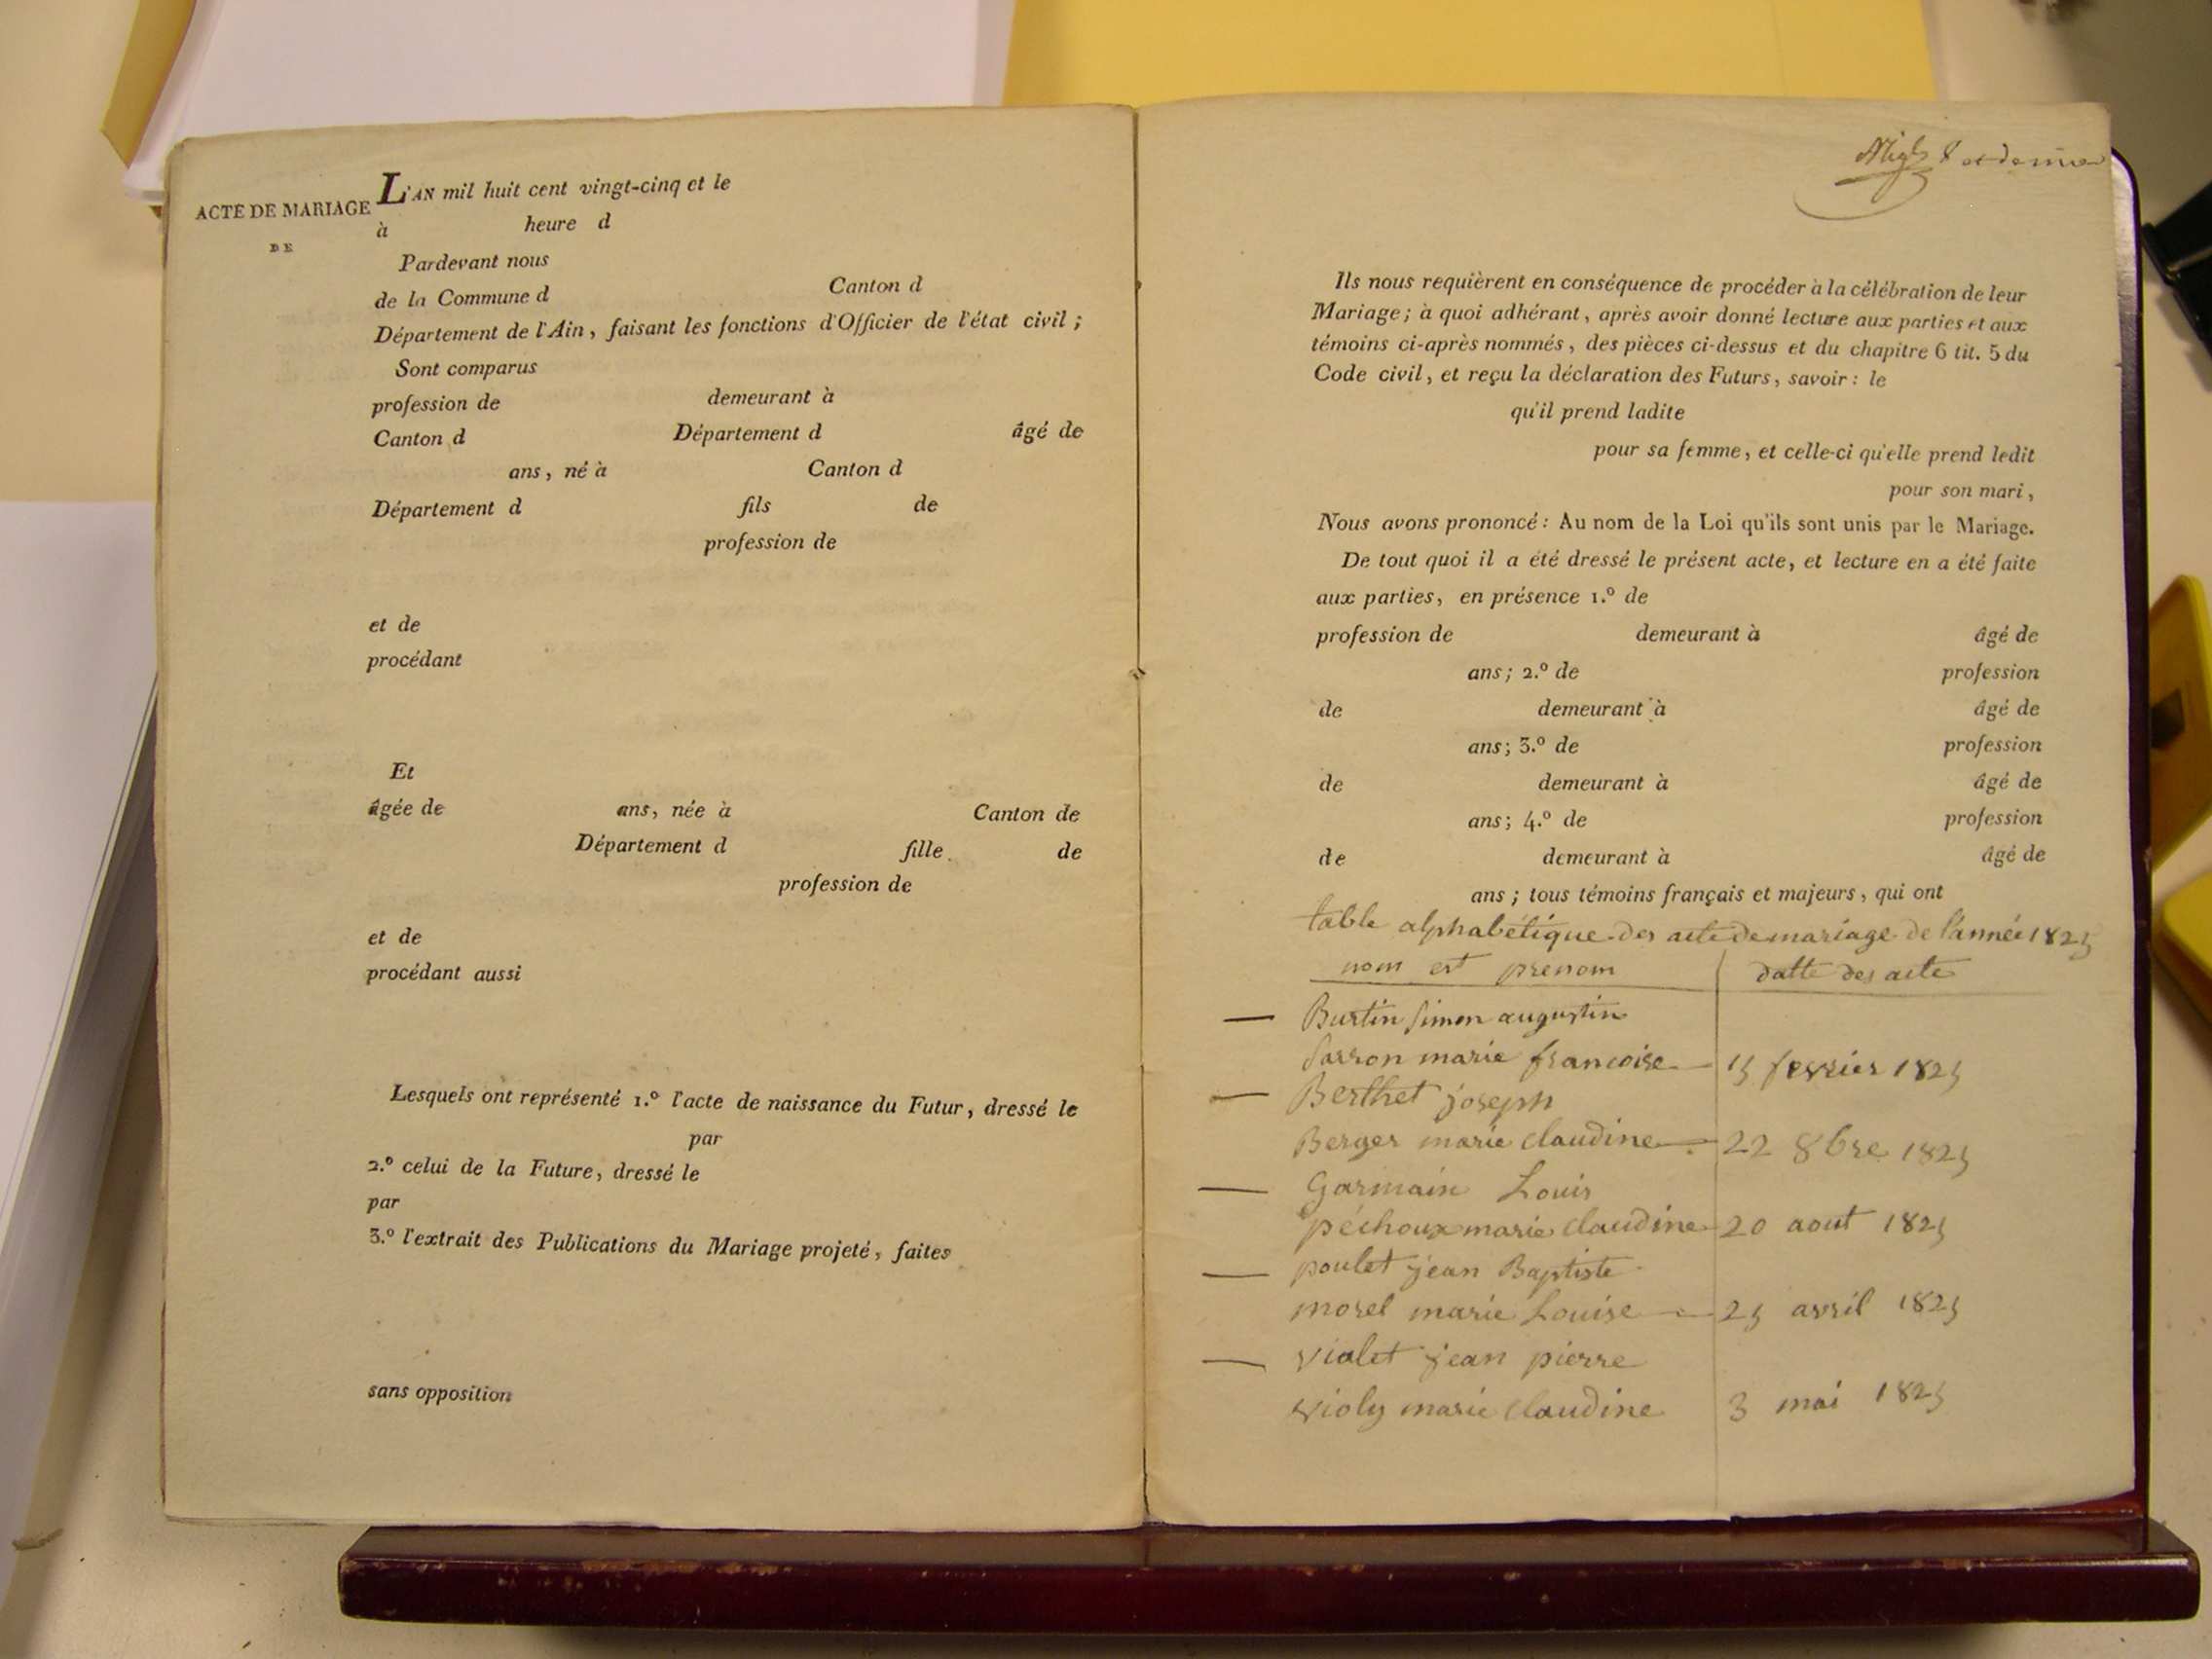 ACTE DE MARIAGE
DE
L'AN mil huit cent vingt-cinq et le
à heure d
Pardevant nous
de la Commune d Canton d
Département de l'Ain, faisant les fonctions d'Officier de l'état civil;
Sont comparus
profession de demeurant à
Canton d Département d âgé de
ans, né à Canton d
Département d fils de
profession de
et de
procédant
Et
âgée de ans, née à Canton de
Département d fille de
profession de
et de
procédant aussi
Lesquels ont représenté 1.º l'acte de naissance du Futur, dressé le
par
2.º celui de la Future, dressé le
par
3.º l'extrait des Publications du Mariage projeté, faites
sans opposition
8 et dernier
Ils nous requièrent en conséquence de procéder à la célébration de leur
Mariage; à quoi adhérant, après avoir donné lecture aux parties et aux
témoins ci-après nommés, des pièces ci-dessus et du chapitre 6 tit. 5 du
Code civil, et reçu la déclaration des Futurs, savoir: le
qu'il prend ladite
pour sa femme, et celle-ci qu'elle prend ledit
pour son mari,
Nous avons prononcé: Au nom de la Loi qu'ils sont unis par le Mariage.
De tout quoi il a été dressé le présent acte, et lecture en a été faite
aux parties, en présence 1.º de
profession de demeurant à âgé de
ans; 2.º de profession
de demeurant à âgé de
ans; 3.º de profession
de demeurant à âgé de
ans; 4.º de profession
de demeurant à âgé de
ans; tous témoins français et majeurs, qui ont
table alphabétique des acte de mariage de l'année 1825
nom est prenom datte des acte
— Burtin Simon augustin
Sarron marie francoise — 15 fevrier 1825
— Berthet joseph
Berger marie claudine — 22 8bre 1825
— Garmain Louis
péchoux marie claudine 20 aout 1825
— poulet jean Baptiste
morel marie Louise — 25 avril 1825
— violet jean pierre
violy marie claudine 3 mai 1825